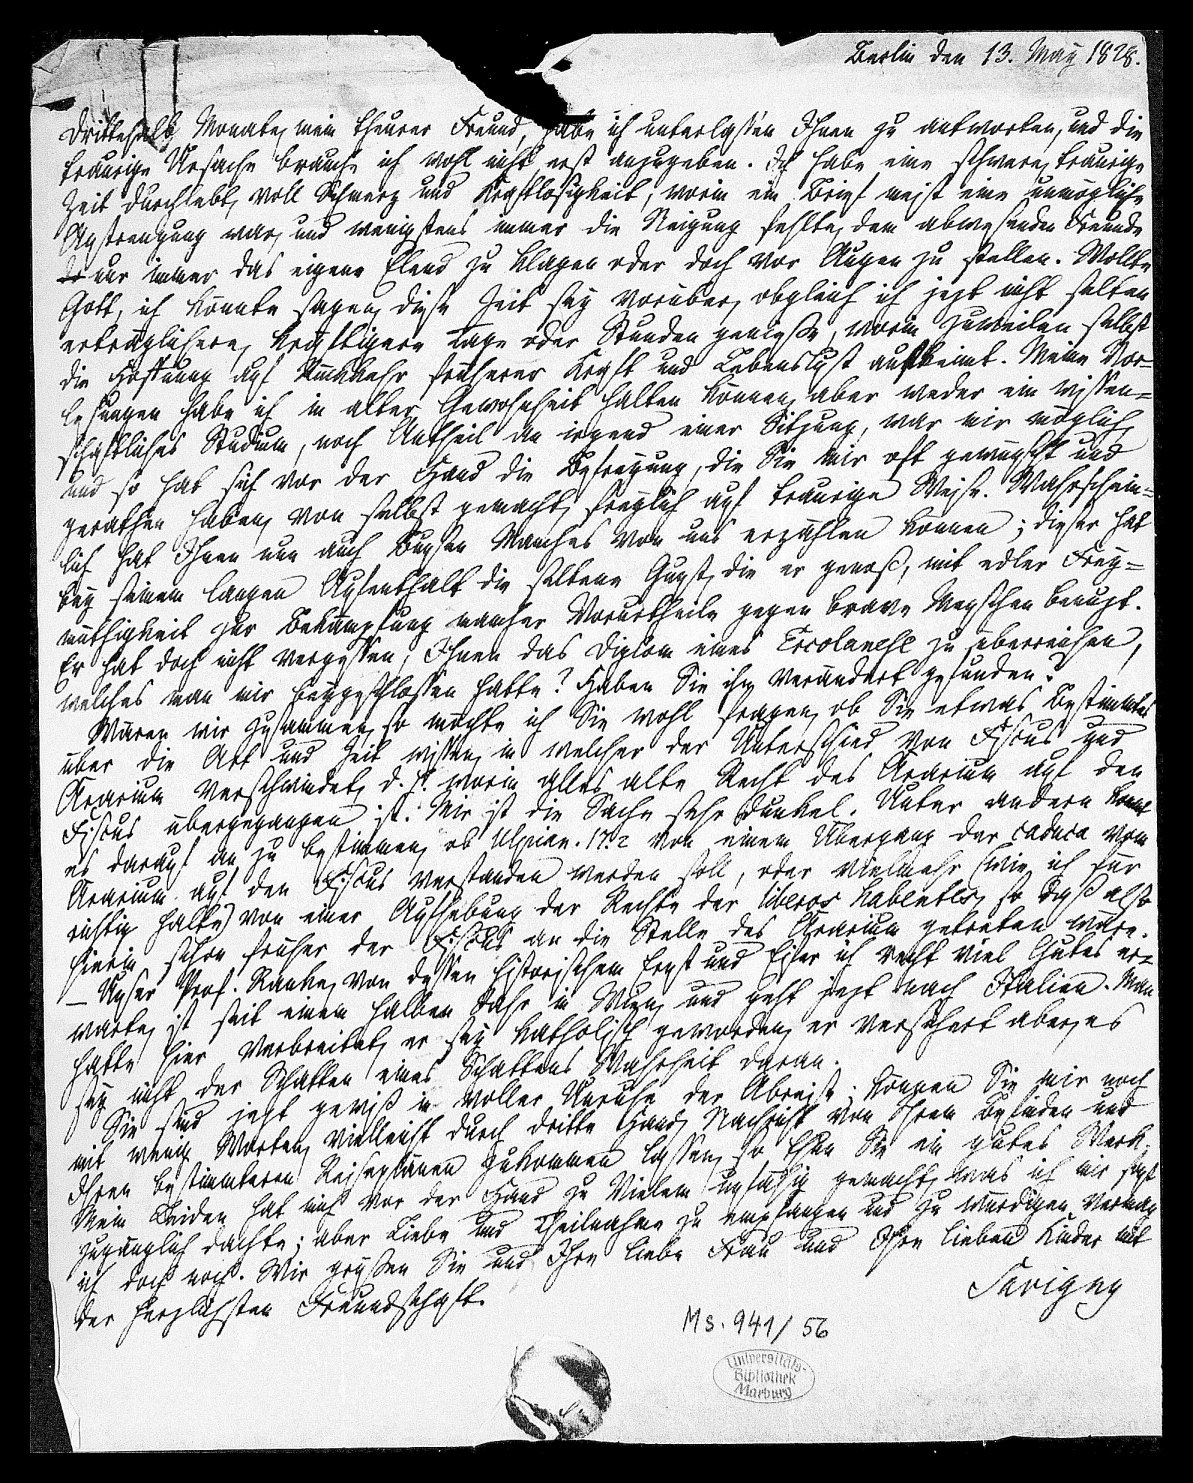 Berlin den 13. May 1828.
Drittehalb Monate, mein theurer Freund, habe ich unterlassen Ihnen zu antworten, und die
traurige Ursache brauche ich wohl nicht erst anzugeben. Ich habe eine schwere, traurige
Zeit durchlebt, voll Schmerz und Kraftlosigkeit, worin ein Brief meist eine unmögliche
Anstrengung war, und wenigstens immer die Neigung fehlte, dem abwesenden Freunde
nur immer das eigene Elend zu klagen oder doch vor Augen zu stellen. Wollte
Gott, ich könnte sagen, diese Zeit sey vorüber, obgleich ich jezt nicht selten
erträglichere, kräftigere Tage oder Stunden genieße, worin zuweilen selbst
die Hoffnung auf Rückkehr früherer Kraft und Lebenslust aufkeimt. Meine Vor-
lesungen habe ich in alter Gewohnheit halten können, aber weder ein wissen-
schaftliches Studium, noch Antheil an irgend einer Sitzung, war mir möglich,
und so hat sich vor der Hand die Befreyung, die Sie mir oft gewünscht und
gerathen haben, von selbst gemacht, freylich auf traurige Weise. Wahrschein-
lich hat Ihnen nun auch Bunsen Manches von uns erzählen können; dieser hat
bey seinem langen Aufenthalt die seltene Gunst, die er genoß, mit edler Frey-
müthigkeit zur Bekämpfung mancher Vorurtheile gegen brave Menschen benuzt.
Er hat doch nicht vergessen, Ihnen das Diplom eines Ercolanese zu überreichen,
welches man mir beygeschlossen hatte? Haben Sie ihn verändert gefunden?
Wären wir zusammen, so möchte ich Sie wohl fragen, ob Sie etwas Bestimmtes
über die Art und Zeit wissen, in welcher der Unterschied von Fiscus und
Ärarium verschwindet, d. h. worin alles alte Recht des Ärarium auf den
Fiscus übergegangen ist. Mir ist die Sache sehr dunkel. Unter andern kommt
es darauf an zu bestimmen, ob Ulpian. 17.2 von einem Übergang der caduca vom
Ärarium auf den Fiscus verstanden werden soll, oder vielmehr (wie ich für
richtig halte) von einer Aufhebung der Rechte der liberos habentes, so daß also
hierin schon früher der Fiscus an die Stelle des Ärarium getreten wäre.
— Unser Prof. Ranke, von dessen historischem Ernst und Eifer ich recht viel Gutes er-
warte, ist seit einem halben Jahr in Wien, und geht jezt nach Italien. Man
hatte hier verbreitet, er sey katholisch geworden, er versichert aber, es
sey nicht der Schatten eines Schattens Wahrheit daran.
Sie sind jezt gewiß in voller Unruhe der Abreise; können Sie mir noch
mit wenig Worten, vielleicht durch dritte Hand, Nachricht von Ihrem Befinden und
Ihren bestimmteren Reiseplänen zukommen lassen, so thun Sie ein gutes Werk.
Mein Leiden hat mich vor der Hand zu Vielem unfähig gemacht, was ich mir sonst
zugänglich dachte; aber Liebe und Theilnahme zu empfangen und zu würdigen, vermag
ich doch noch. Wir grüßen Sie und Ihre liebe Frau und Ihre lieben Kinder mit
der herzlichsten Freundschaft.
Savigny
Ms. 941/56
Universitäts-
Bibliothek
Marburg